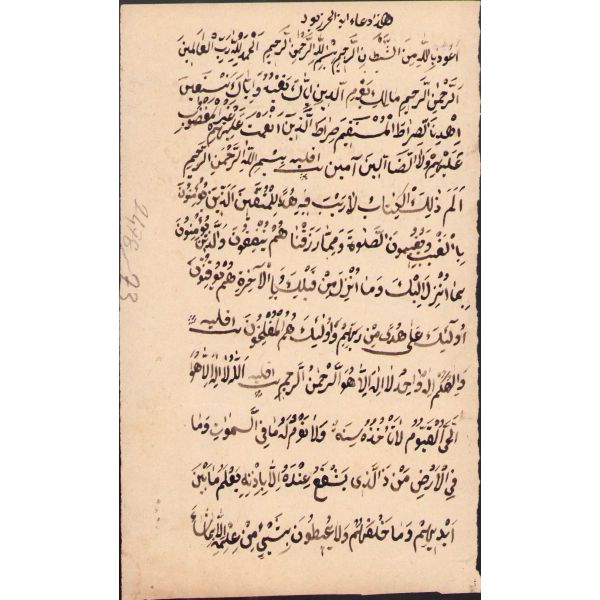 هذا دعاء اية الحرز
اعوذ بالله من الشيطان الرجيم بسم الله الرحمن الرحيم الحمد لله رب العالمين
الرحمن الرحيم مالك يوم الدين اياك نعبد واياك نستعين
اهدنا الصراط المستقيم صراط الذين انعمت عليهم غير المغضوب
عليهم ولا الضالين آمين بسم الله الرحمن الرحيم
الم ذلك الكتاب لا ريب فيه هدى للمتقين الذين يؤمنون
بالغيب ويقيمون الصلوة ومما رزقناهم ينفقون والذين يؤمنون
بما انزل اليك وما انزل من قبلك وبالآخرة هم يوقنون
اولئك على هدى من ربهم واولئك هم المفلحون
والهكم اله واحد لا اله الا هو الرحمن الرحيم الله لا اله الا هو
الحي القيوم لا تأخذه سنة ولا نوم له ما في السموات وما
في الارض من ذا الذي يشفع عنده الا باذنه يعلم ما بين
ايديهم وما خلفهم ولا يحيطون بشيء من علمه الا بما شاء